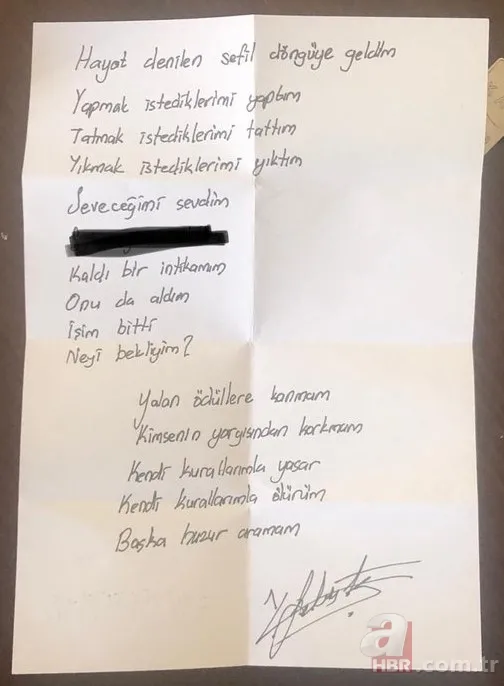 Hayat denilen sefil döngüye geldim
Yapmak istediklerimi yaptım
Tatmak istediklerimi tattım
Yıkmak istediklerimi yıktım
Seveceğimi sevdim
Kaldı bir intikamım
Onu da aldım
İşim bitti
Neyi bekliyim?
Yalan ödüllere kanmam
Kimsenin yargısından korkmam
Kendi kurallarımla yaşar
Kendi kurallarımla ölürüm
Başka huzur aramam
a
HBR.com.tr